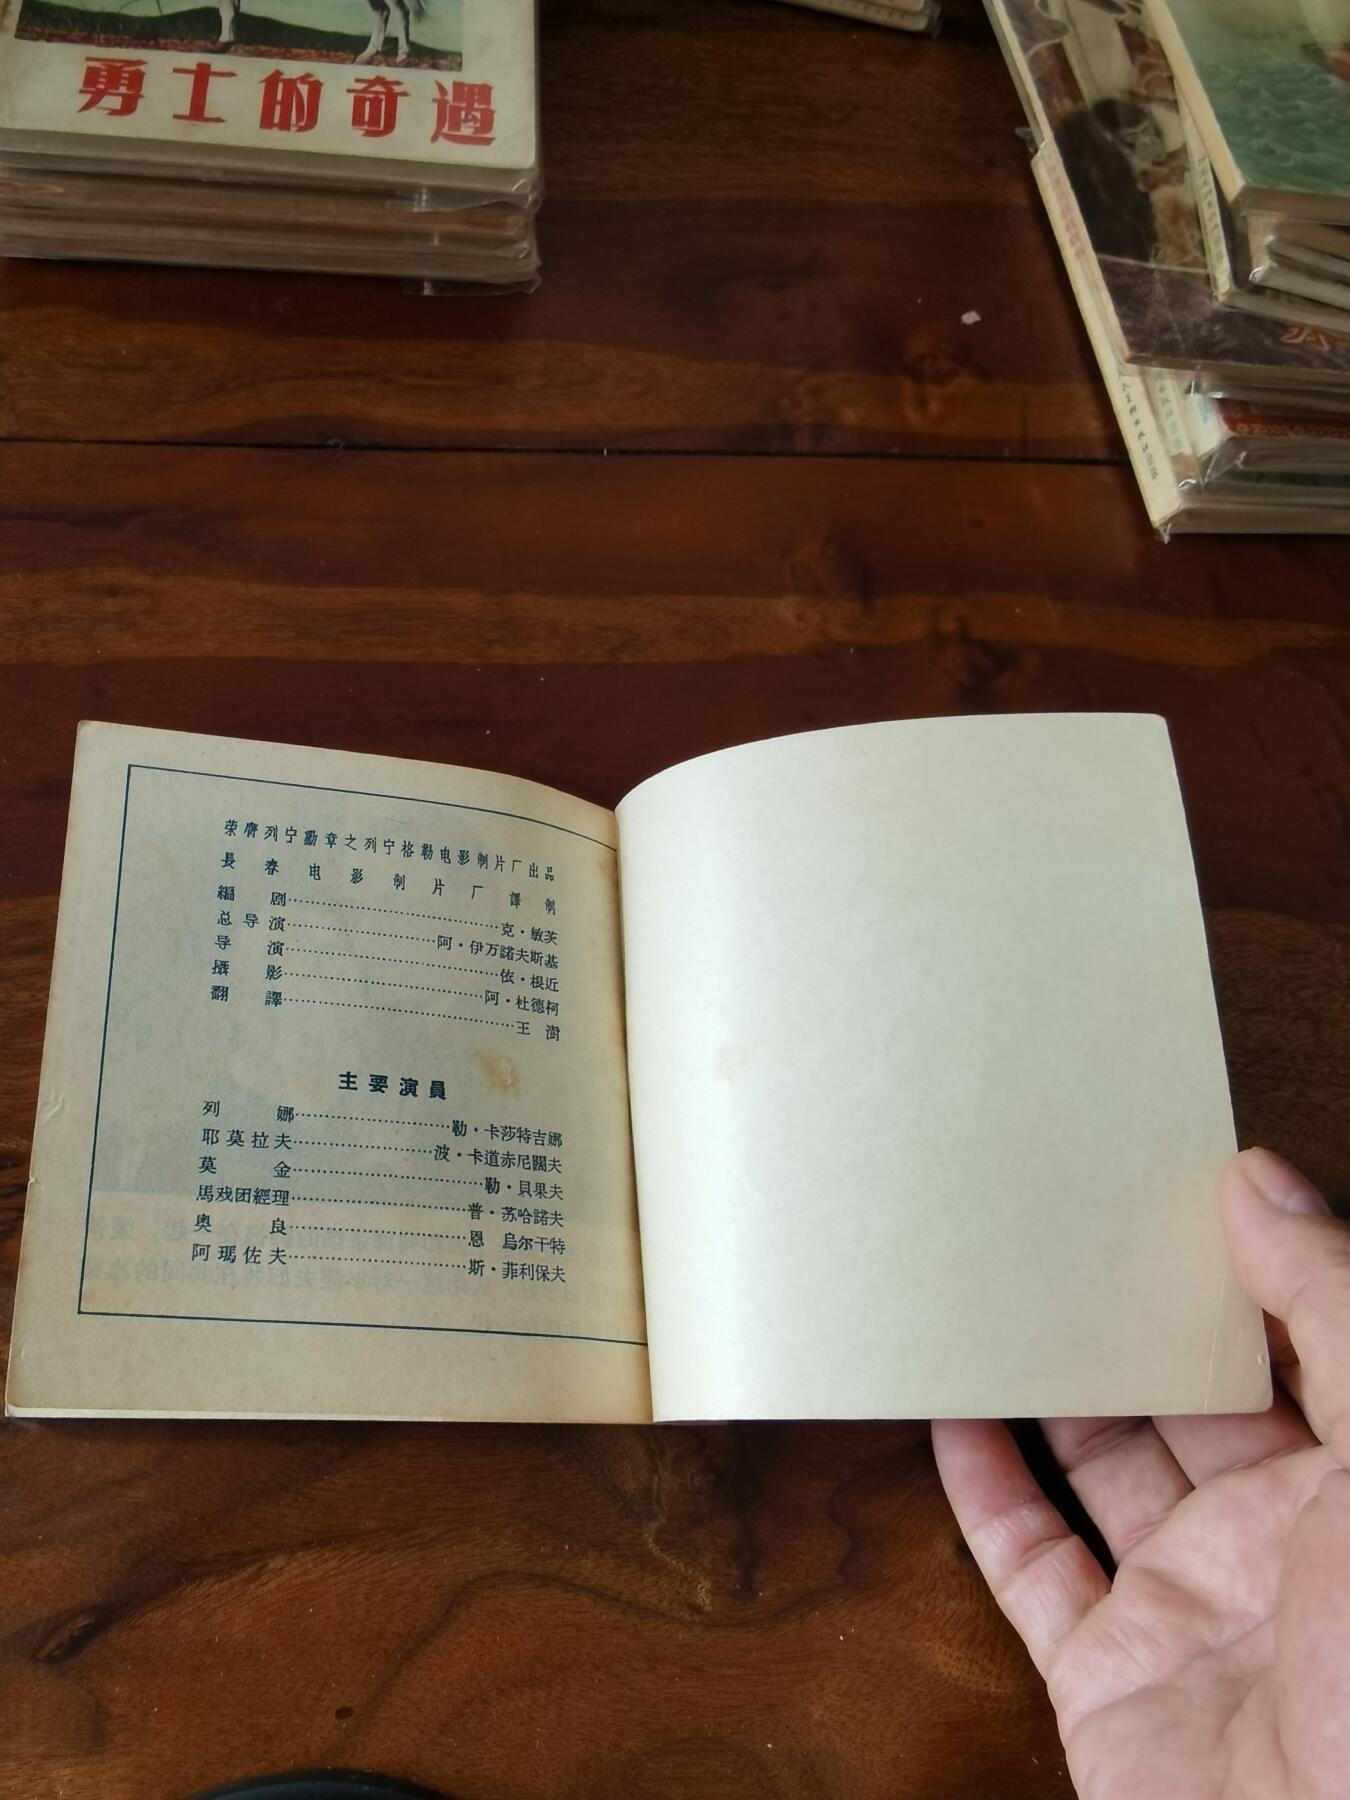 勇士的奇遇
荣膺列宁勳章之列宁格勒电影制片厂出品
長春电影制片厂譯制
編剧……克·敏茨
总导演……阿·伊万諾夫斯基
导演……依·根近
攝影……阿·杜德柯
翻譯……王澍
主要演員
列娜……勒·卡莎特吉娜
耶莫拉夫……波·卡道赤尼闊夫
莫金……勒·貝果夫
馬戏团經理……普·苏哈諾夫
奧良……恩 烏尔干特
阿瑪佐夫……斯·菲利保夫